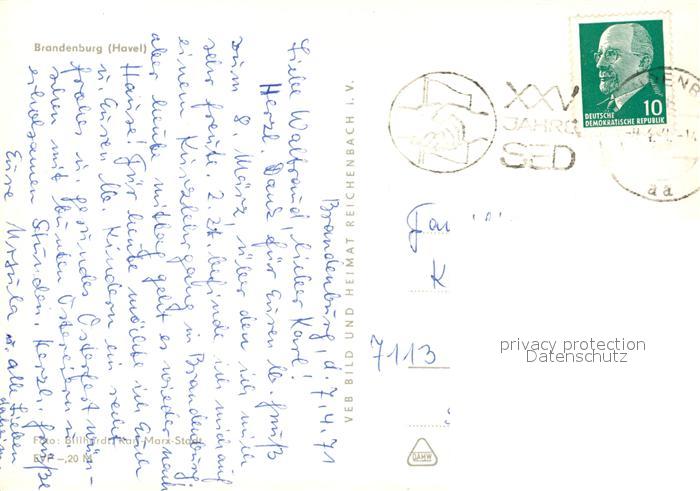 Brandenburg (Havel)
Brandenburg, d. 7.4.71
Liebe Waltraud, lieber Karl!
Herzl. Dank für Euren lb. Gruß
zum 8. März, über den ich mich
sehr freute. Z. Zt. befinde ich mich auf
einem Kurzlehrgang in Brandenburg,
aber heute mittag geht es wieder nach
Hause! Für heute möchte ich Euch
u. Euren lb. Kindern ein recht
frohes u. gesundes Osterfest wün-
schen mit bunten Ostereiern u.
erholsamen Stunden. Herzl. Grüße
Eure Ursula u. alle Lieben
daheim.
Foto: Billhardt, Karl-Marx-Stadt
EVP -,20 M
VEB BILD UND HEIMAT REICHENBACH I. V.
XXV
JAHRE
SED
DEUTSCHE
DEMOKRATISCHE REPUBLIK
10
aa
Fam
K
7113
privacy protection
Datenschutz
DAMW